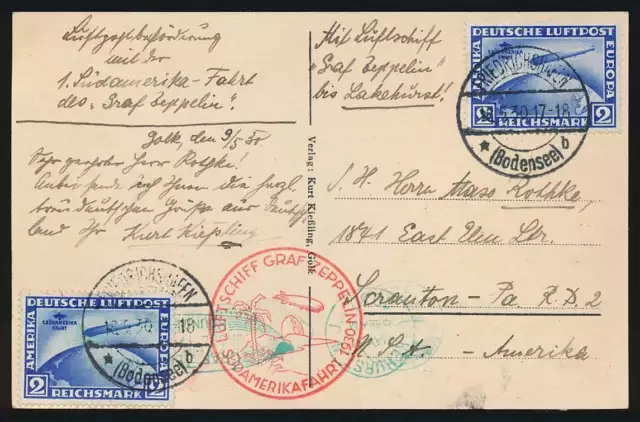 Luftpostbeförderung
mit der
1. Südamerika-Fahrt
des „Graf Zeppelin".
Golk, den 9/5 30
Sehr geehrter Herr Rothke!
Anbei sende ich Ihnen die herzl.
deutschen Grüße aus Deutsch-
land Ihr Kurt Kießling
Verlag: Kurt Kießling, Golk
Mit Luftschiff
„Graf Zeppelin"
bis Lakehurst!
S. H. Herrn Hass Rothke,
1841 East Elm Str.
Scranton - Pa R. D. 2
U. S. A. - Amerika
DEUTSCHE LUFTPOST
AMERIKA
EUROPA
2 REICHSMARK 2
FRIEDRICHSHAFEN
18.5.30.17-18
(Bodensee) b
DEUTSCHE LUFTPOST
SÜDAMERIKA
FAHRT
AMERIKA
EUROPA
2 2
REICHSMARK
FRIEDRICHSHAFEN
18.5.30 18
(Bodensee) b
LUFTSCHIFF GRAF ZEPPELIN
SÜDAMERIKAFAHRT 1930